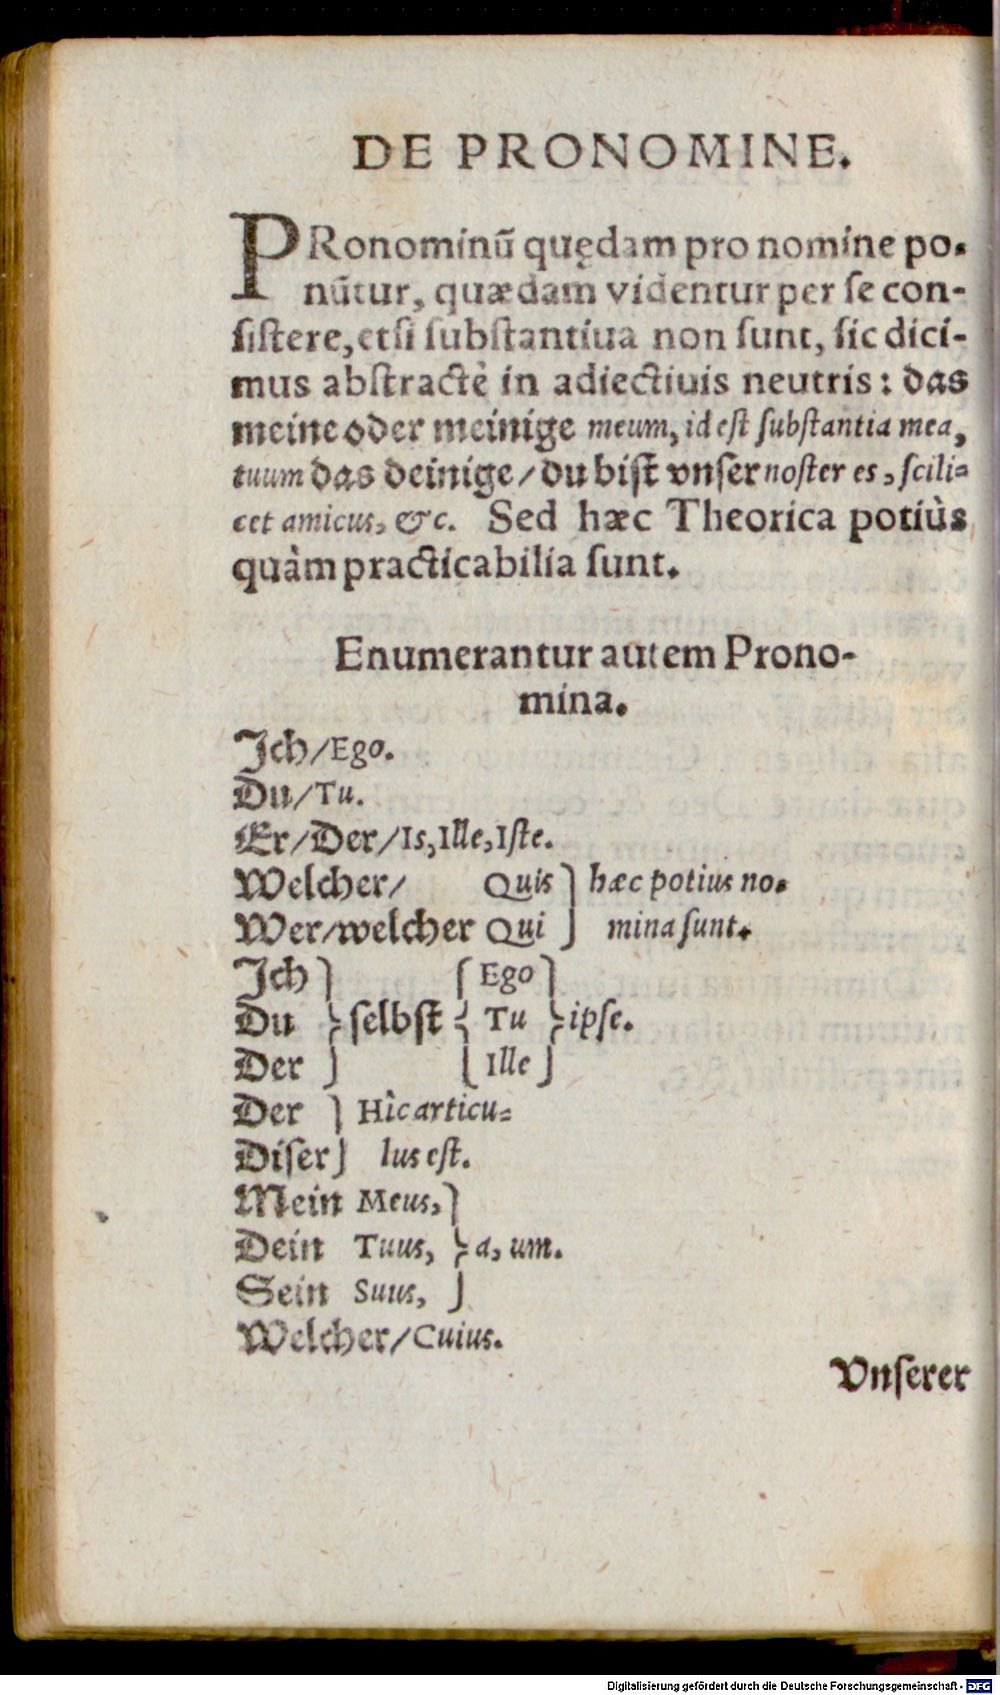 DE PRONOMINE.
PRonominū quędam pro nomine po-
nūtur, quædam videntur per ſe con-
ſiſtere, etſi ſubſtantiua non ſunt, ſic dici-
mus abſtractè in adiectiuis neutris: das
meine oder meinige meum, id eſt ſubſtantia mea,
tuum das deinige/ du biſt vnſer noſter es, ſcili-
cet amicus, &c. Sed hæc Theorica potiùs
quàm practicabilia ſunt.
Enumerantur autem Prono-
mina.
Ich/ Ego.
Du/ Tu.
Er/ Der/ Is, Ille, Iſte.
Welcher/ Quis } hæc potius no-
Wer/ welcher Qui } mina ſunt.
Ich } { Ego }
Du } ſelbſt { Tu } ipſe.
Der } { Ille }
Der } Hîc articu-
Diſer } lus eſt.
Mein Meus, }
Dein Tuus, } a, um.
Sein Suus, }
Welcher/ Cuius.
Vnſerer
Digitalisierung gefördert durch die Deutsche Forschungsgemeinschaft - DFG